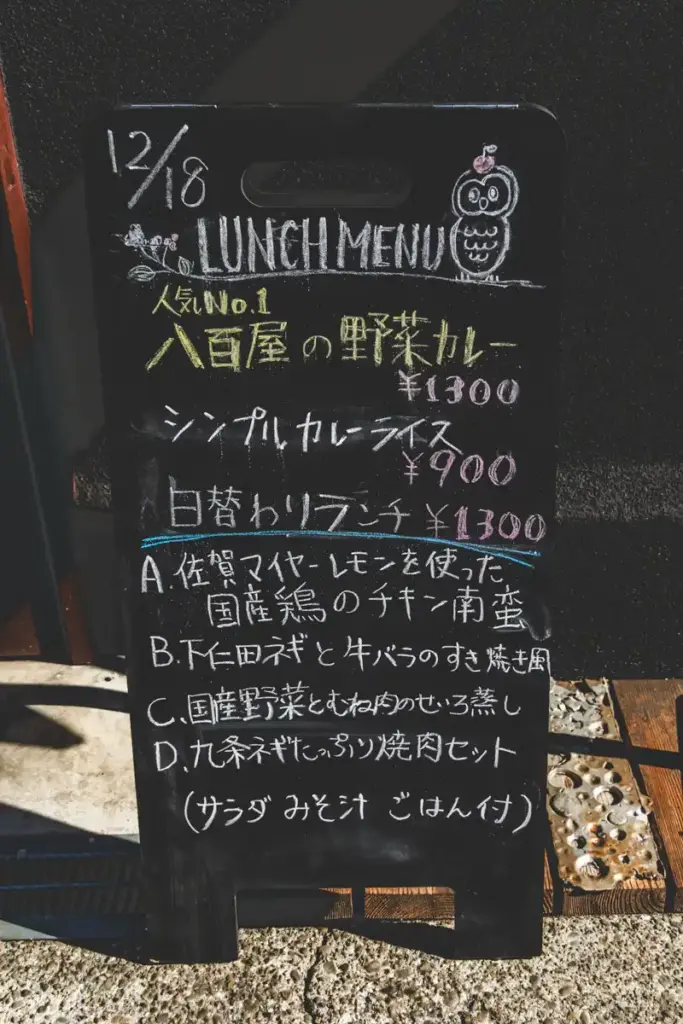 12/18
LUNCH MENU
人気No.1
八百屋の野菜カレー
¥1300
シンプルカレーライス
¥900
日替わりランチ ¥1300
A.佐賀マイヤーレモンを使った
国産鶏のチキン南蛮
B.下仁田ネギと牛バラのすき焼き風
C.国産野菜とむね肉のせいろ蒸し
D.九条ネギたっぷり焼肉セット
(サラダ みそ汁 ごはん付)